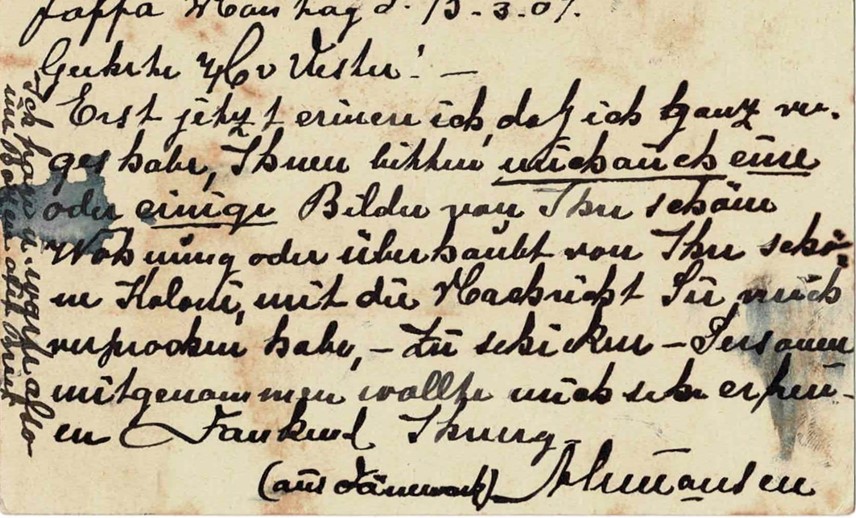 Jaffa Montag d. 13.3.07.
Geehrte Hr Vester! —
Erst jetzt erinere ich, daß ich ganz ver-
ges habe, Ihnen bitten mich auch eine
oder einige Bilder von Ihr schöne
Wohnung oder überhaubt von Ihr schö-
ne Koloni, mit die Nachricht Sie mich
versprochen habe, – zu schicken – Personen
mitgenommen wollte mich sehr erfreu-
en Dankend Ihnen
(aus Dänemark)
Ich